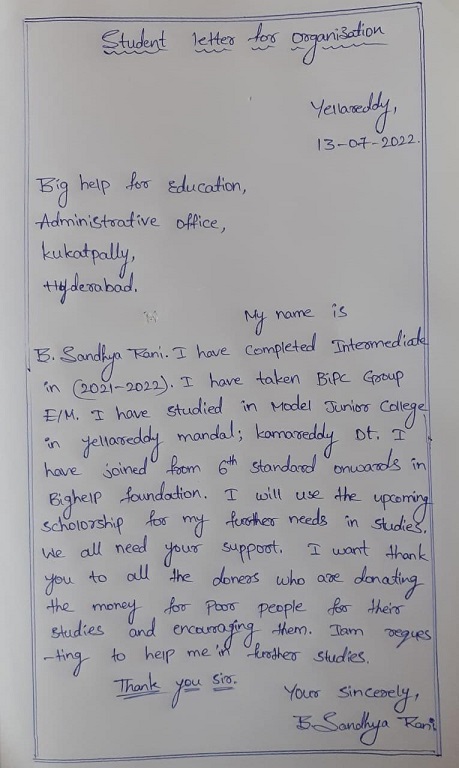 Student letter for organisation
Yellareddy,
13-07-2022.
Big help for Education,
Administrative office,
kukatpally,
Hyderabad.
My name is
B. Sandhya Rani. I have completed Intermediate
in (2021-2022). I have taken BiPC Group
E/M. I have studied in Model Junior College
in yellareddy mandal; kamareddy Dt. I
have joined from 6th standard onwards in
Bighelp foundation. I will use the upcoming
scholorship for my further needs in studies.
We all need your support. I want thank
you to all the doners who are donating
the money for poor people for their
studies and encouraging them. Iam reques
-ting to help me in further studies.
Thank you sir.
Your sincerely,
B. Sandhya Rani